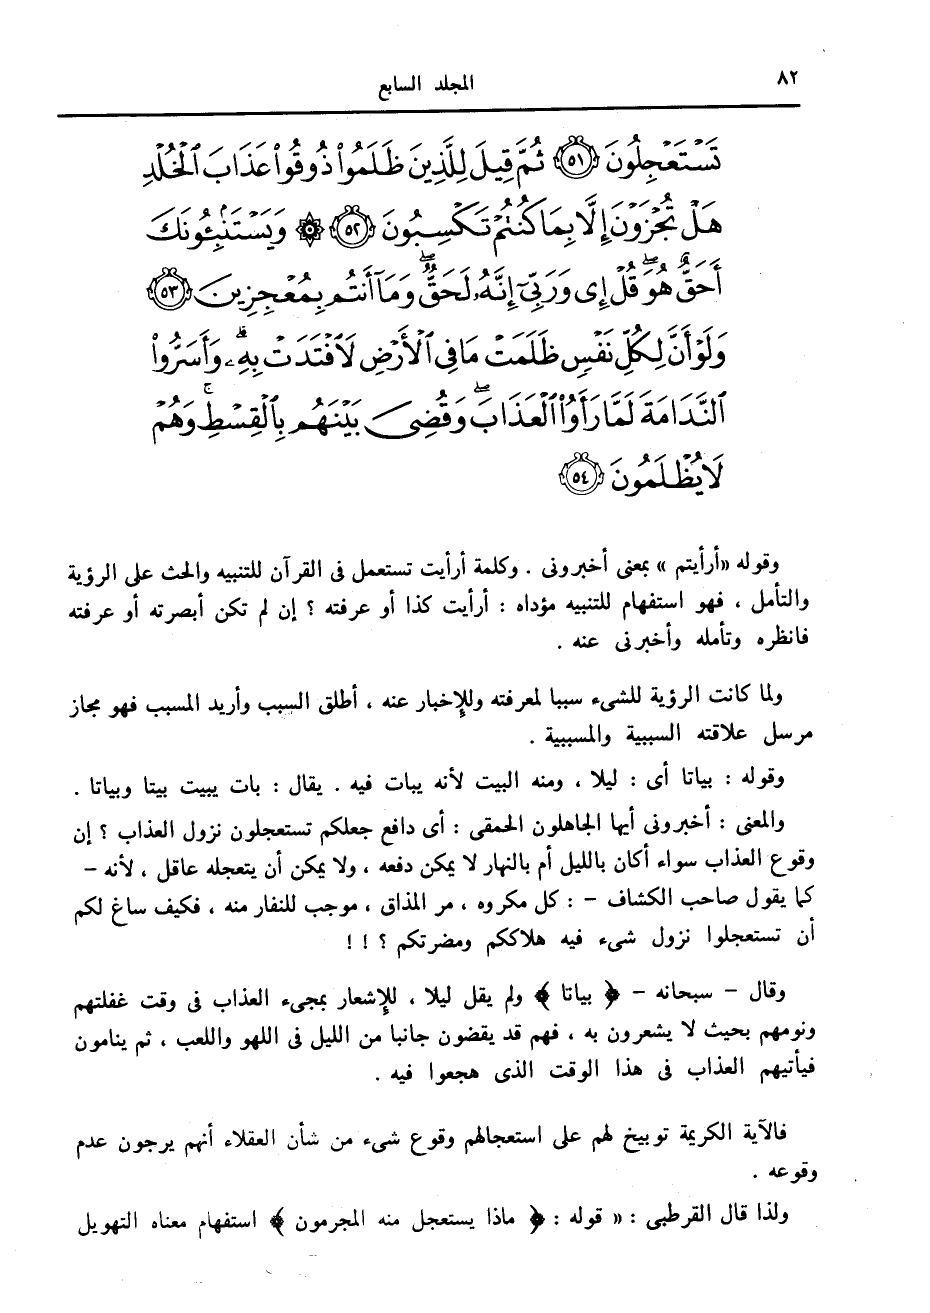 ٨٢
المجلد السابع
تَسْتَعْجِلُونَ ٥١ ثُمَّ قِيلَ لِلَّذِينَ ظَلَمُوا۟ ذُوقُوا۟ عَذَابَ ٱلْخُلْدِ
هَلْ تُجْزَوْنَ إِلَّا بِمَا كُنتُمْ تَكْسِبُونَ ٥٢ ۞ وَيَسْتَنۢبِـُٔونَكَ
أَحَقٌّ هُوَ ۖ قُلْ إِى وَرَبِّىٓ إِنَّهُۥ لَحَقٌّ ۖ وَمَآ أَنتُم بِمُعْجِزِينَ ٥٣
وَلَوْ أَنَّ لِكُلِّ نَفْسٍ ظَلَمَتْ مَا فِى ٱلْأَرْضِ لَٱفْتَدَتْ بِهِۦ ۗ وَأَسَرُّوا۟
ٱلنَّدَامَةَ لَمَّا رَأَوُا۟ ٱلْعَذَابَ ۖ وَقُضِىَ بَيْنَهُم بِٱلْقِسْطِ ۚ وَهُمْ
لَا يُظْلَمُونَ ٥٤
وقوله «أرأيتم » بمعنى أخبرونى . وكلمة أرأيت تستعمل فى القرآن للتنبيه والحث على الرؤية
والتأمل ، فهو استفهام للتنبيه مؤداه : أرأيت كذا أو عرفته ؟ إن لم تكن أبصرته أو عرفته
فانظره وتأمله وأخبرنى عنه .
ولما كانت الرؤية للشىء سببا لمعرفته وللإخبار عنه ، أطلق السبب وأريد المسبب فهو مجاز
مرسل علاقته السببية والمسببية .
وقوله : بياتا أى : ليلا ، ومنه البيت لأنه يبات فيه . يقال : بات يبيت بيتا وبياتا .
والمعنى : أخبرونى أيها الجاهلون الحمقى : أى دافع جعلكم تستعجلون نزول العذاب ؟ إن
وقوع العذاب سواء أكان بالليل أم بالنهار لا يمكن دفعه ، ولا يمكن أن يتعجله عاقل ، لأنه -
كما يقول صاحب الكشاف - : كل مكروه ، مر المذاق ، موجب للنفار منه ، فكيف ساغ لكم
أن تستعجلوا نزول شىء فيه هلاككم ومضرتكم ؟ ! !
وقال - سبحانه - ﴿ بياتا ﴾ ولم يقل ليلا ، للإشعار بمجىء العذاب فى وقت غفلتهم
ونومهم بحيث لا يشعرون به ، فهم قد يقضون جانبا من الليل فى اللهو واللعب ، ثم ينامون
فيأتيهم العذاب فى هذا الوقت الذى هجعوا فيه .
فالآية الكريمة توبيخ لهم على استعجالهم وقوع شىء من شأن العقلاء أنهم يرجون عدم
وقوعه .
ولذا قال القرطبى : « قوله : ﴿ ماذا يستعجل منه المجرمون ﴾ استفهام معناه التهويل